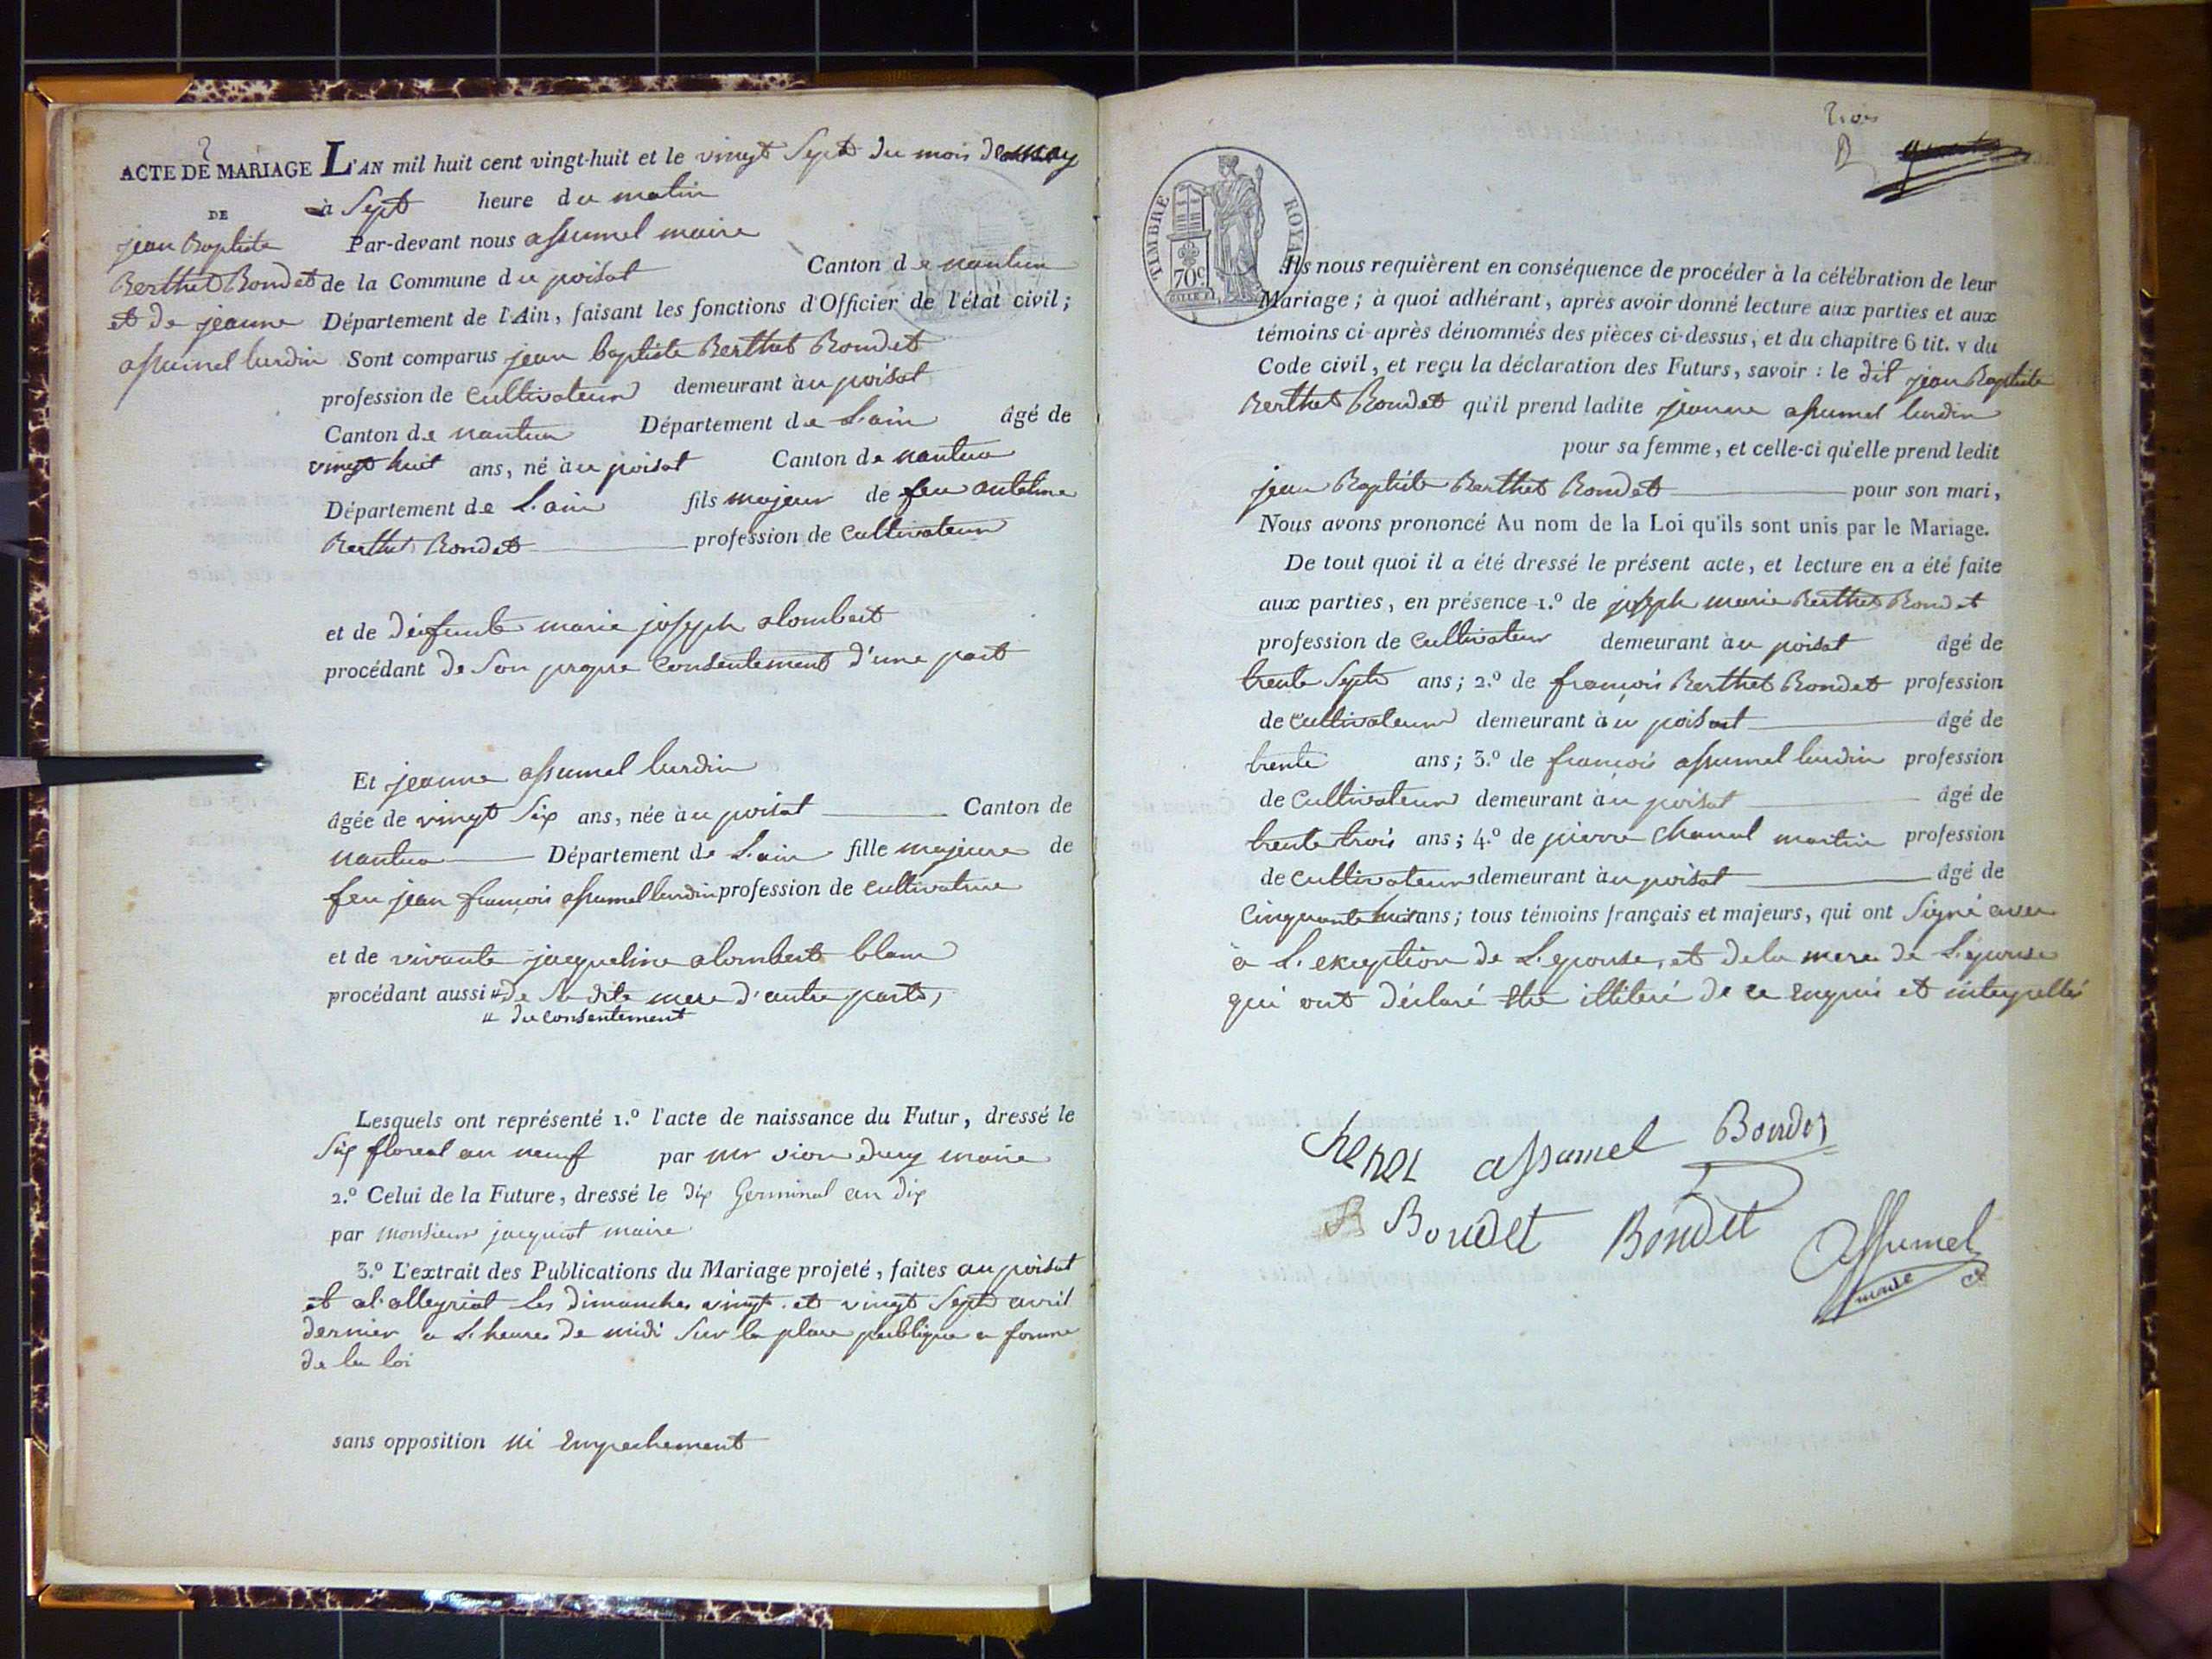 2
ACTE DE MARIAGE
DE
jean Baptiste
Berthet Bondet
et de jeanne
assumel lurdin
L'AN mil huit cent vingt-huit et le vingt Sept du mois de may
à Sept heure du matin
Par-devant nous assumel maire
de la Commune du poisat Canton de nantua
Département de l'Ain, faisant les fonctions d'Officier de l'état civil;
Sont comparus jean baptiste Berthet Bondet
profession de Cultivateur demeurant àu poisat
Canton de nantua Département de L'ain âgé de
vingt huit ans, né àu poisat Canton de nantua
Département de L'ain fils majeur de feu antelme
Berthet Bondet profession de Cultivateur
et de deffunte marie joseph alombert
procédant de Son propre Consentement d'une part
Et jeanne assumel lurdin
âgée de vingt Six ans, née àu poisat Canton de
nantua Département de L'ain fille majeure de
feu jean françois assumel lurdin profession de Cultivatrice
et de vivante jacqueline alombert blanc
procédant aussi " de Sa dite mere d'autre parts,
" du consentement
Lesquels ont représenté 1.º l'acte de naissance du Futur, dressé le
Six floreal an neuf par mr vion dury maire
2.º Celui de la Future, dressé le dix Germinal an dix
par monsieur jacquiot maire
3.º L'extrait des Publications du Mariage projeté, faites au poisat
et al'alleyriat les dimanches vingt et vingt Sept avril
dernier a L'heure de midi Sur la place publique a forme
de la loi
sans opposition ni Empechement
Trois
TIMBRE ROYAL
70c
Ils nous requièrent en conséquence de procéder à la célébration de leur
Mariage; à quoi adhérant, après avoir donné lecture aux parties et aux
témoins ci-après dénommés des pièces ci-dessus, et du chapitre 6 tit. v du
Code civil, et reçu la déclaration des Futurs, savoir: le dit jean Baptiste
Berthet Bondet qu'il prend ladite jeanne assumel lurdin
pour sa femme, et celle-ci qu'elle prend ledit
jean Baptiste Berthet Bondet pour son mari,
Nous avons prononcé Au nom de la Loi qu'ils sont unis par le Mariage.
De tout quoi il a été dressé le présent acte, et lecture en a été faite
aux parties, en présence 1.º de joseph marie Berthet Bondet
profession de Cultivateur demeurant àu poisat âgé de
trente Sept ans; 2.º de françois Berthet Bondet profession
de Cultivateur demeurant àu poisat âgé de
trente ans; 3.º de françois assumel lurdin profession
de Cultivateur demeurant àu poisat âgé de
trente trois ans; 4.º de pierre Chanel martin profession
de Cultivateur demeurant àu poisat âgé de
Cinquante huit ans; tous témoins français et majeurs, qui ont Signé avec
à L'exception de L'epouse, et de la mere de L'épouse
qui ont déclaré etre illiteré de ce Enquis et interpellés
Chenel assumel Bondet
B Bondet Bondet
Assumel
maire